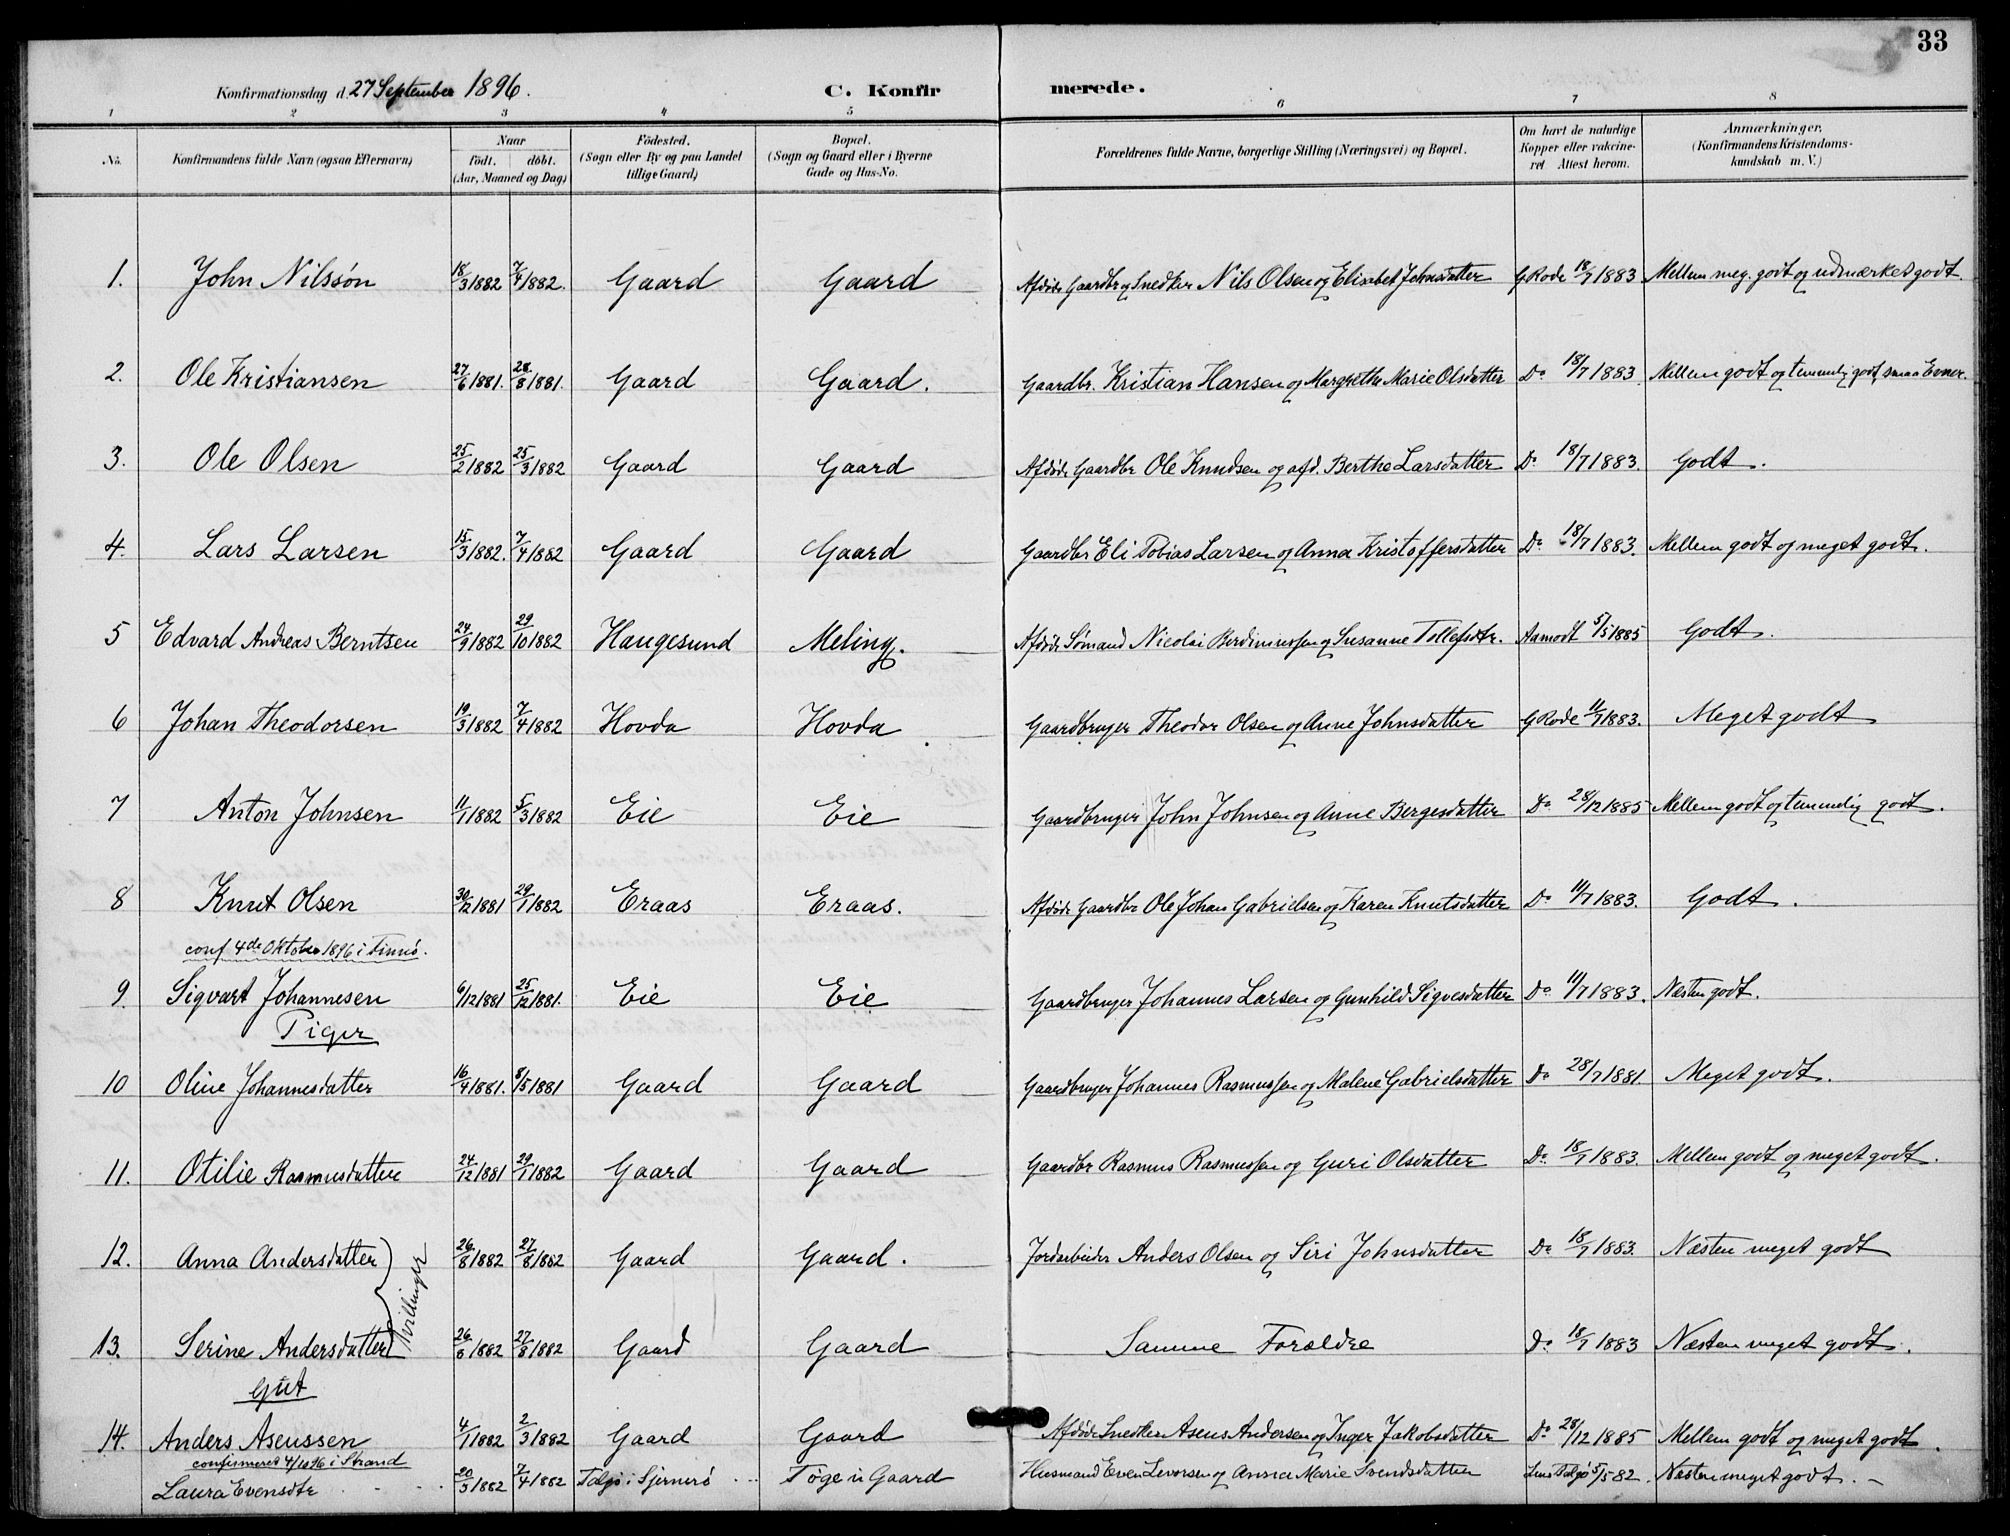 33
Konfirmationsdag d. 27 September 1896. C. Konfirmerede.
1 2 3 4 5 6 7 8
No. Konfirmandens fulde Navn (ogsaa Efternavn) Naar født. døbt. (Aar, Maaned og Dag) Fødested. (Sogn eller By og paa Landet tillige Gaard) Bopæl. (Sogn og Gaard eller i Byerne Gade og Hus-No. Forældrenes fulde Navne, borgerlige Stilling (Næringsvei) og Bopæl. Om havt de naturlige Kopper eller vakcineret Attest herom. Anmærkninger. (Konfirmandens Kristendomskundskab m. V.)
1. John Nilssøn 18/3 1882 7/4 1882. Gaard Gaard Afdøde Gaardbr og Snedker Nils Olsen og Elisabet Johnsdatter G Rode 18/7 1883 Mellem meg. godt og udmærket godt
2. Ole Kristiansen 27/6 1881. 28/8 1881. Gaard Gaard. Gaardbr. Kristian Hansen og Margrethe Marie Olsdatter Do 18/7 1883 Mellem godt og temmelig godt, smaa Evner.
3. Ole Olsen 25/2 1882 25/3 1882 Gaard Gaard Afdøde Gaardbr Ole Knudsen og afd. Berthe Larsdatter Do 18/7 1883. Godt.
4. Lars Larsen 15/3 1882. 7/4 1882 Gaard Gaard Gaardbr Eli Tobias Larsen og Anna Kristoffersdatter Do 18/7 1883. Mellem godt og meget godt.
5 Edvard Andreas Berntsen 24/9 1882 29/10 1882 Haugesund Meling. Afdøde Sømand Nicolai og Susanne Tollefsdtr. Aamodt 5/5 1885 Godt.
6 Johan Theodorsen 19/3 1882 7/4 1882 Hovda Hovda Gaardbruger Theodor Olsen og Anne Johnsdatter G Rode 11/7 1883. Meget godt
7 Anton Johnsen 11/1 1882 5/3 1882 Eie Eie Gaardbruger John Johnsen og Anne Bergesdatter Do 28/12 1885 Mellem godt og temmelig godt.
8 Knut Olsen 30/12 1881 29/1 1882 Eraas Eraas. Afdøde Gaardbr Ole Johan Gabrielsen og Karen Knutsdatter Do 11/7 1883. Godt.
conf 4de Oktober 1896 i Finnø.
9. Sigvart Johannesen 6/12 1881 25/12 1881. Eie Eie Gaardbruger Johannes Larsen og Gunhild Sigvesdatter Do 11/7 1883. Næsten godt.
Piger
10 Oline Johannesdatter 16/4 1881. 8/5 1881 Gaard Gaard Gaardbruger Johannes Rasmussen og Malene Gabrielsdatter Do 28/7 1881. Meget godt.
11. Otilie Rasmusdatter 24/12 1881 29/1 1882 Gaard Gaard Gaardbr Rasmus Rasmussen og Guri Olsdatter Do 18/7 1883. Mellem godt og meget godt.
12. Anna Andersdatter 26/8 1882 27/8 1882 Gaard Gaard. Jordarbeider Anders Olsen og Siri Johnsdatter Do 18/7 1883. Næsten meget godt
Tvillinger
13. Serine Andersdatter 26/8 1882 27/8 1882 Gaard Gaard Samme Forældre Do 18/7 1883 Næsten meget godt.
Gut
14. Anders Asenssen 4/1 1882 2/3 1882 Gaard Gaard Afdøde Snedker Asens Andersen og Inger Jakobsdatter Do 28/12 1885 Mellem godt og meget godt.
confirmeret 4/10 96 i Strand
Laura Evensdtr 20/3 1882 7/4 1882 Talgø i Sjernerø Tøge i Gaard Husmand Even Leversen og Anna Marie Svendsdatter 5/5 82. Næsten meget godt.